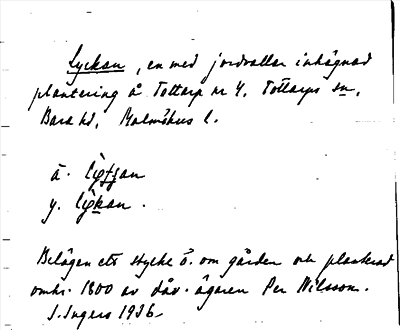 Lyckan, en med jordvallar inhägnad
plantering å Tottarp nr 4, Tottarps sn,
Bara hd, Malmöhus l.
ä.
y. lỳkan.
Belägen ett stycke ö. om gården och planterad
omkr. 1800 av dåv. ägaren Per Nilsson.
I. Ingers 1936